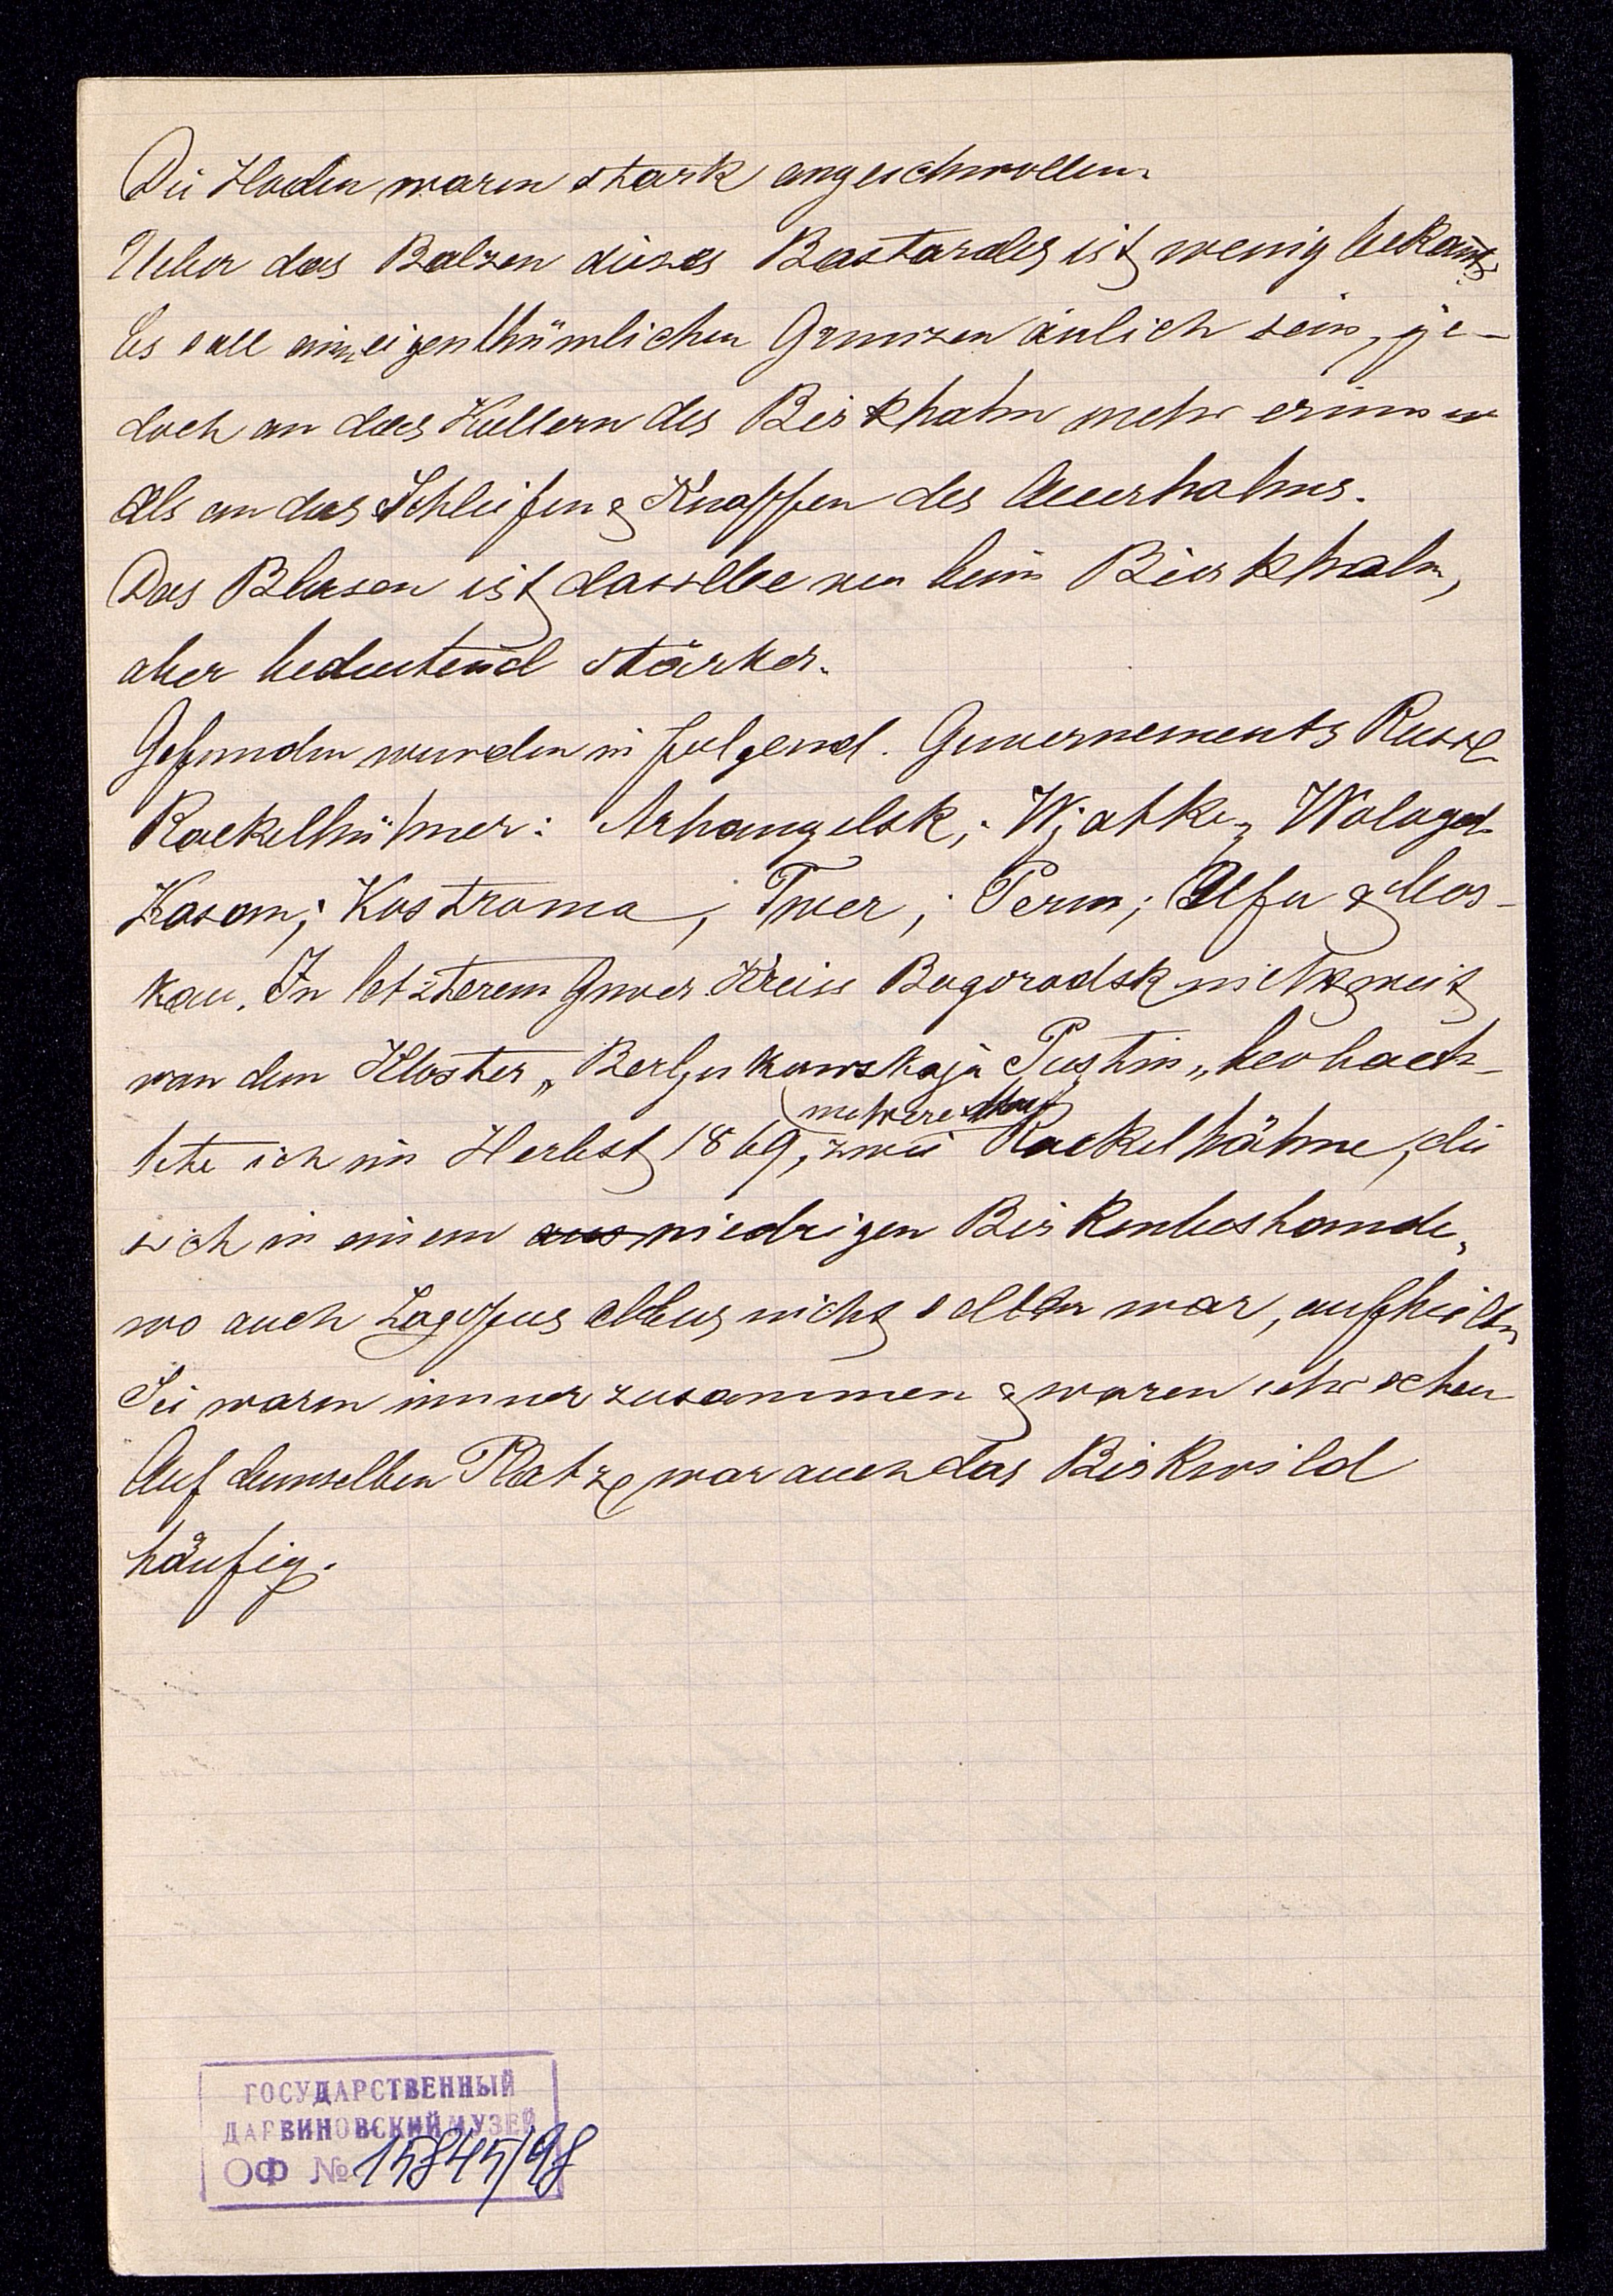 Die Hoden waren stark angeschwollen.
Ueber das Balzen dieses Bastardes ist wenig bekannt.
Es soll einem eigenthümlichen Grunzen änlich sein, je-
doch an das Kullern des Birkhahn mehr erinnern
als an das Schleifen & Knappen des Auerhahns.
Das Blasen ist dasselbe wie beim Birkhahn,
aber bedeutend stärker.
Gefunden wurden in folgend. Guvernements Russl.
Rackelhühner: Arhangelsk; Wjatka; Wologd.
Kasan; Kostroma; Twer; Perm; Ufa & Mos-
kau. In letzterem Guver. Kreiss Bogorodsk nicht weit
von dem Kloster „Berljukowskaja Pustin„ beobach-
mehrere
tete ich im Herbst 1869, zwei Rackelhähne, die
sich in einem aus niedrigen Birkenbestande,
wo auch Lagopus albus nicht selten war, aufhielten
Sie waren immer zusammen & waren sehr scheu
Auf demselben Platze war auch das Birkwild
häufig.
ГОСУДАРСТВЕННЫЙ
ДАРВИНОВСКИЙ МУЗЕЙ
ОФ № 15845/98